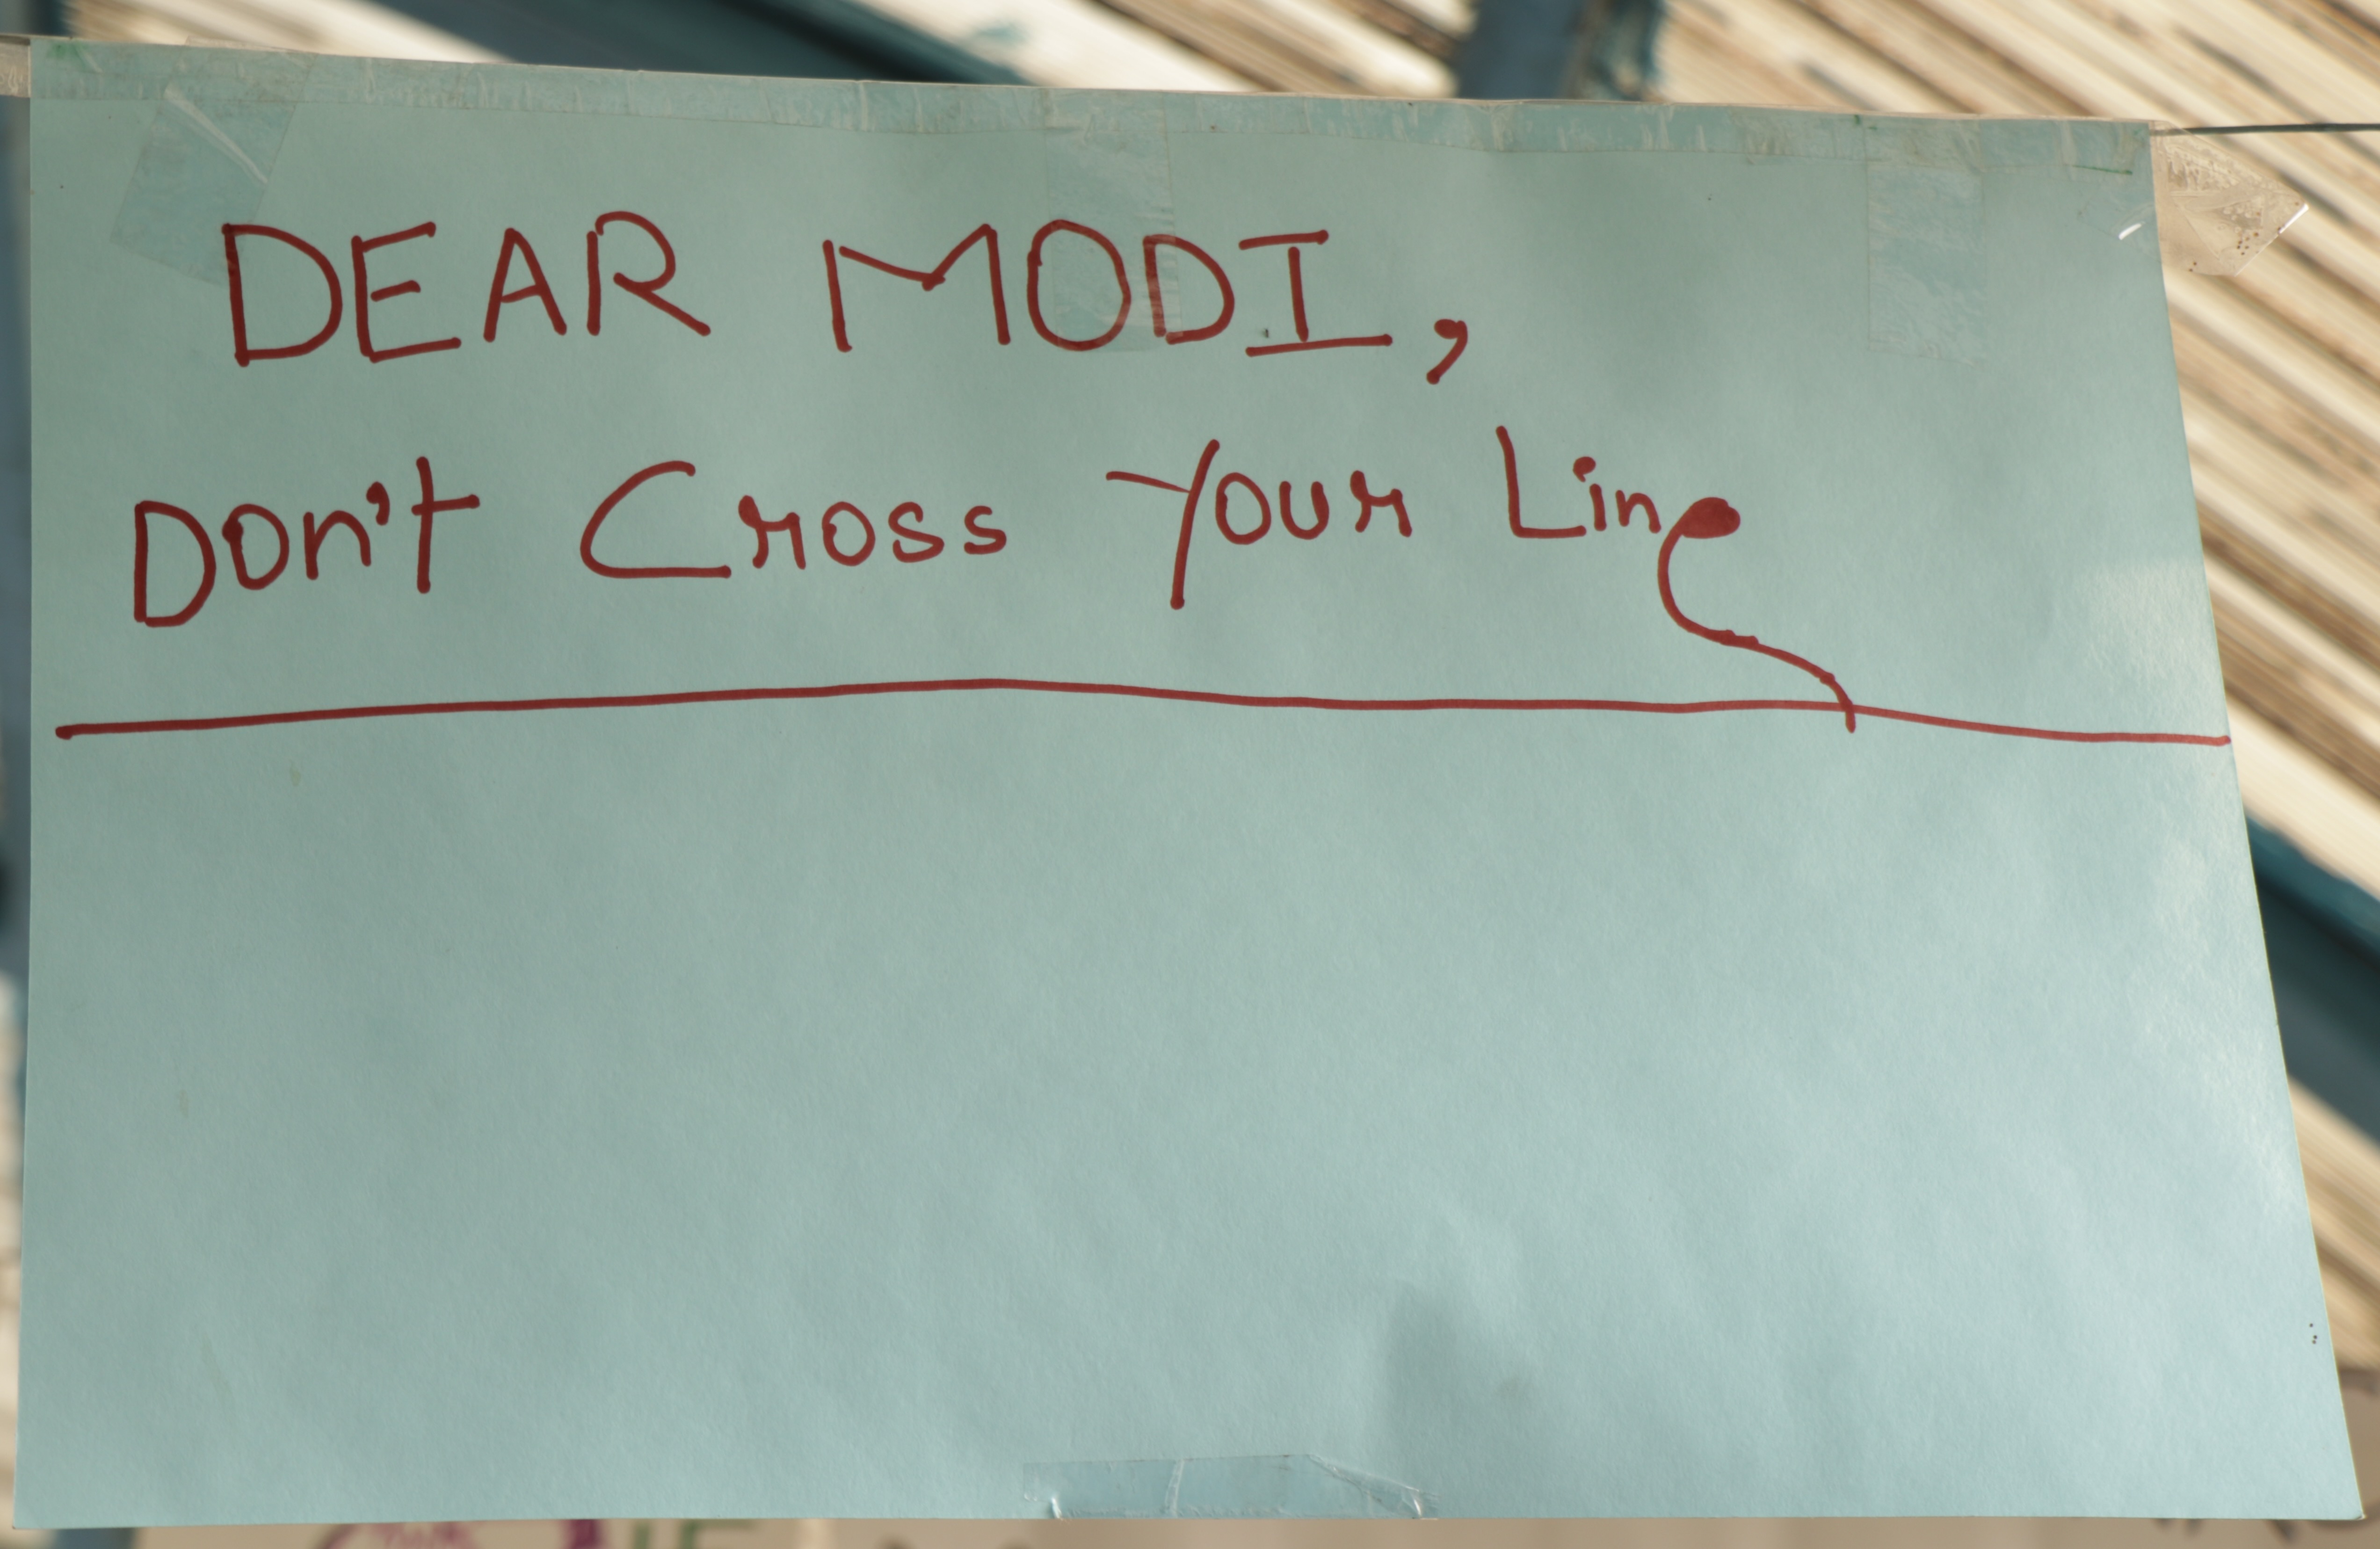 DEAR MODI,
Don't Cross Your Line